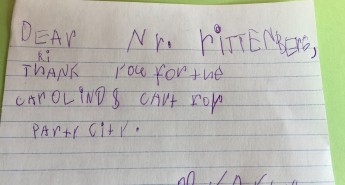 DEAr Nr. rITTENBErG,
THANK you for the
CArOLINDS CArt for
PArtY CitY.